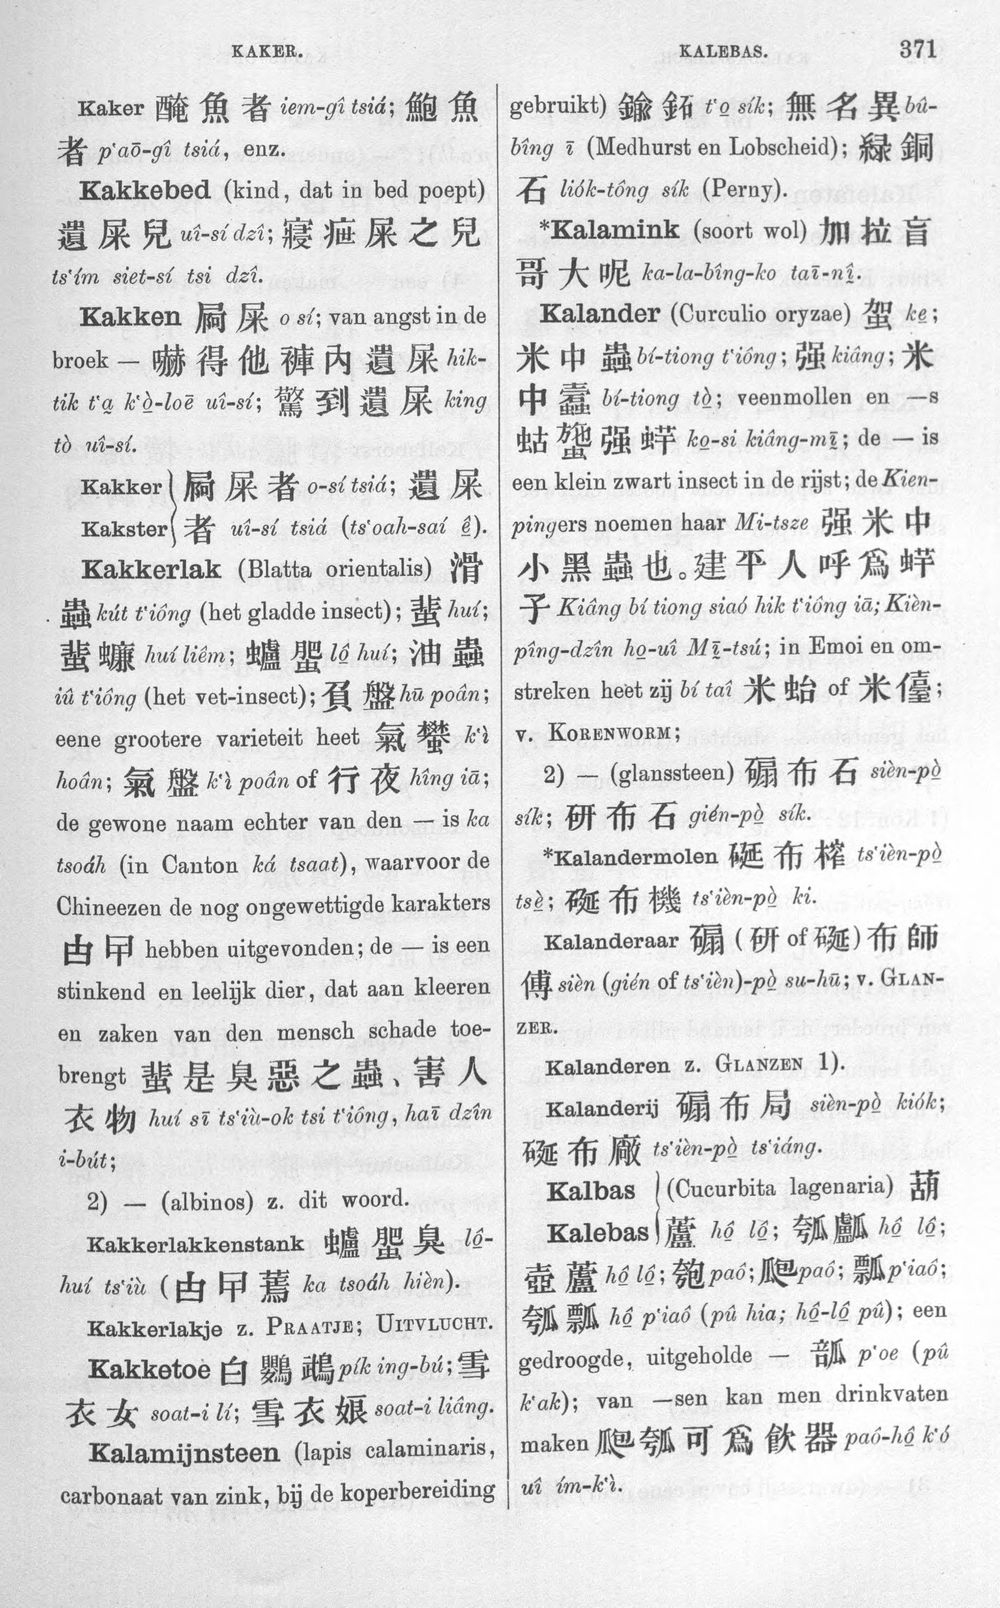 KAKER.
KALEBAS.
371
Kaker 醃魚者 iem-gî tsiá; 鮑魚
者 p‘aō-gî tsiá, enz.
Kakkebed (kind, dat in bed poept)
遺屎兒 uî-sí dzî; 寢疵屎之兒
ts‘ím siet-sí tsi dzî.
Kakken 屙屎 o sí; van angst in de
broek — 嚇得他褲內遺屎 hik-
tik t‘a̱ k‘ò̱-loē uî-sí; 驚到遺屎 king
tò uî-sí.
Kakker 屙屎者 o-sí tsiá; 遺屎
Kakster 者 uî-sí tsiá (ts‘oah-saí ê̱).
Kakkerlak (Blatta orientalis) 滑
蟲 kút t‘iông (het gladde insect); 蜚 huí;
蜚蠊 huí liêm; 蠦蜰 lô̱ huí; 油蟲
iû t‘iông (het vet-insect); 負盤 hū poân;
eene grootere varieteit heet 氣蠜 k‘ì
hoân; 氣盤 k‘ì poân of 行夜 hîng iā;
de gewone naam echter van den — is ka
tsoáh (in Canton ká tsaat), waarvoor de
Chineezen de nog ongewettigde karakters
甴曱 hebben uitgevonden; de — is een
stinkend en leelijk dier, dat aan kleeren
en zaken van den mensch schade toe-
brengt 蜚是臭惡之蟲、害人
衣物 huí sī ts‘iù-ok tsi t‘iông, haī dzîn
i-bút;
2) — (albinos) z. dit woord.
Kakkerlakkenstank 蠦蜰臭 lô̱-
huí ts‘iù (甴曱蔫 ka tsoáh hièn).
Kakkerlakje z. PRAATJE; UITVLUCHT.
Kakketoe 白鸚鵡 pík ing-bú; 雪
衣女 soat-i lí; 雪衣娘 soat-i liâng.
Kalamijnsteen (lapis calaminaris,
carbonaat van zink, bij de koperbereiding
gebruikt) 鍮鉐 t‘o̱ sík; 無名異 bû-
bîng ī (Medhurst en Lobscheid); 綠銅
石 liók-tông sík (Perny).
*Kalamink (soort wol) 加拉盲
哥大呢 ka-la-bîng-ko taī-nî̱.
Kalander (Curculio oryzae) 䖙 ke̱;
米中蟲 bí-tiong t‘iông; 强 kiâng; 米
中蠹 bí-tiong tò̱; veenmollen en —s
蛄䗐强蛘 ko̱-si kiâng-mī̱; de — is
een klein zwart insect in de rijst; de Kien-
pingers noemen haar Mi-tsze 强米中
小黑蟲也。建平人呼爲蛘
子 Kiâng bí tiong siaó hik t‘iông iā; Kièn-
pîng-dzîn ho̱-uî Mī̱-tsú; in Emoi en om-
streken heet zij bí taî 米蛤 of 米儓;
v. KORENWORM;
2) — (glanssteen) 碥布石 sièn-pò̱
sík; 研布石 gién-pò̱ sík.
*Kalandermolen 硟布榨 ts‘ièn-pò̱
tsè̱; 硟布機 ts‘ièn-pò̱ ki.
Kalanderaar 碥 (研 of 硟) 布師
傅 sièn (gién of ts‘ièn)-pò̱ su-hū; v. GLAN-
ZER.
Kalanderen z. GLANZEN 1).
Kalanderij 碥布局 sièn-pò̱ kiók;
硟布廠 ts‘ièn-pò̱ ts‘iáng.
Kalbas (Cucurbita lagenaria) 葫
Kalebas 蘆 hô̱ lô̱; 瓠㼖 hô̱ lô̱;
壺蘆 hô̱ lô̱; 匏 paô; 瓟 paô; 瓢 p‘iaô;
瓠瓢 hô̱ p‘iaô (pû hia; hô̱-lô̱ pû); een
gedroogde, uitgeholde — 瓿 p‘oe (pû
k‘ak); van —sen kan men drinkvaten
maken 瓟瓠可爲飲器 paô-hô̱ k‘ó
uî ím-k‘ì.